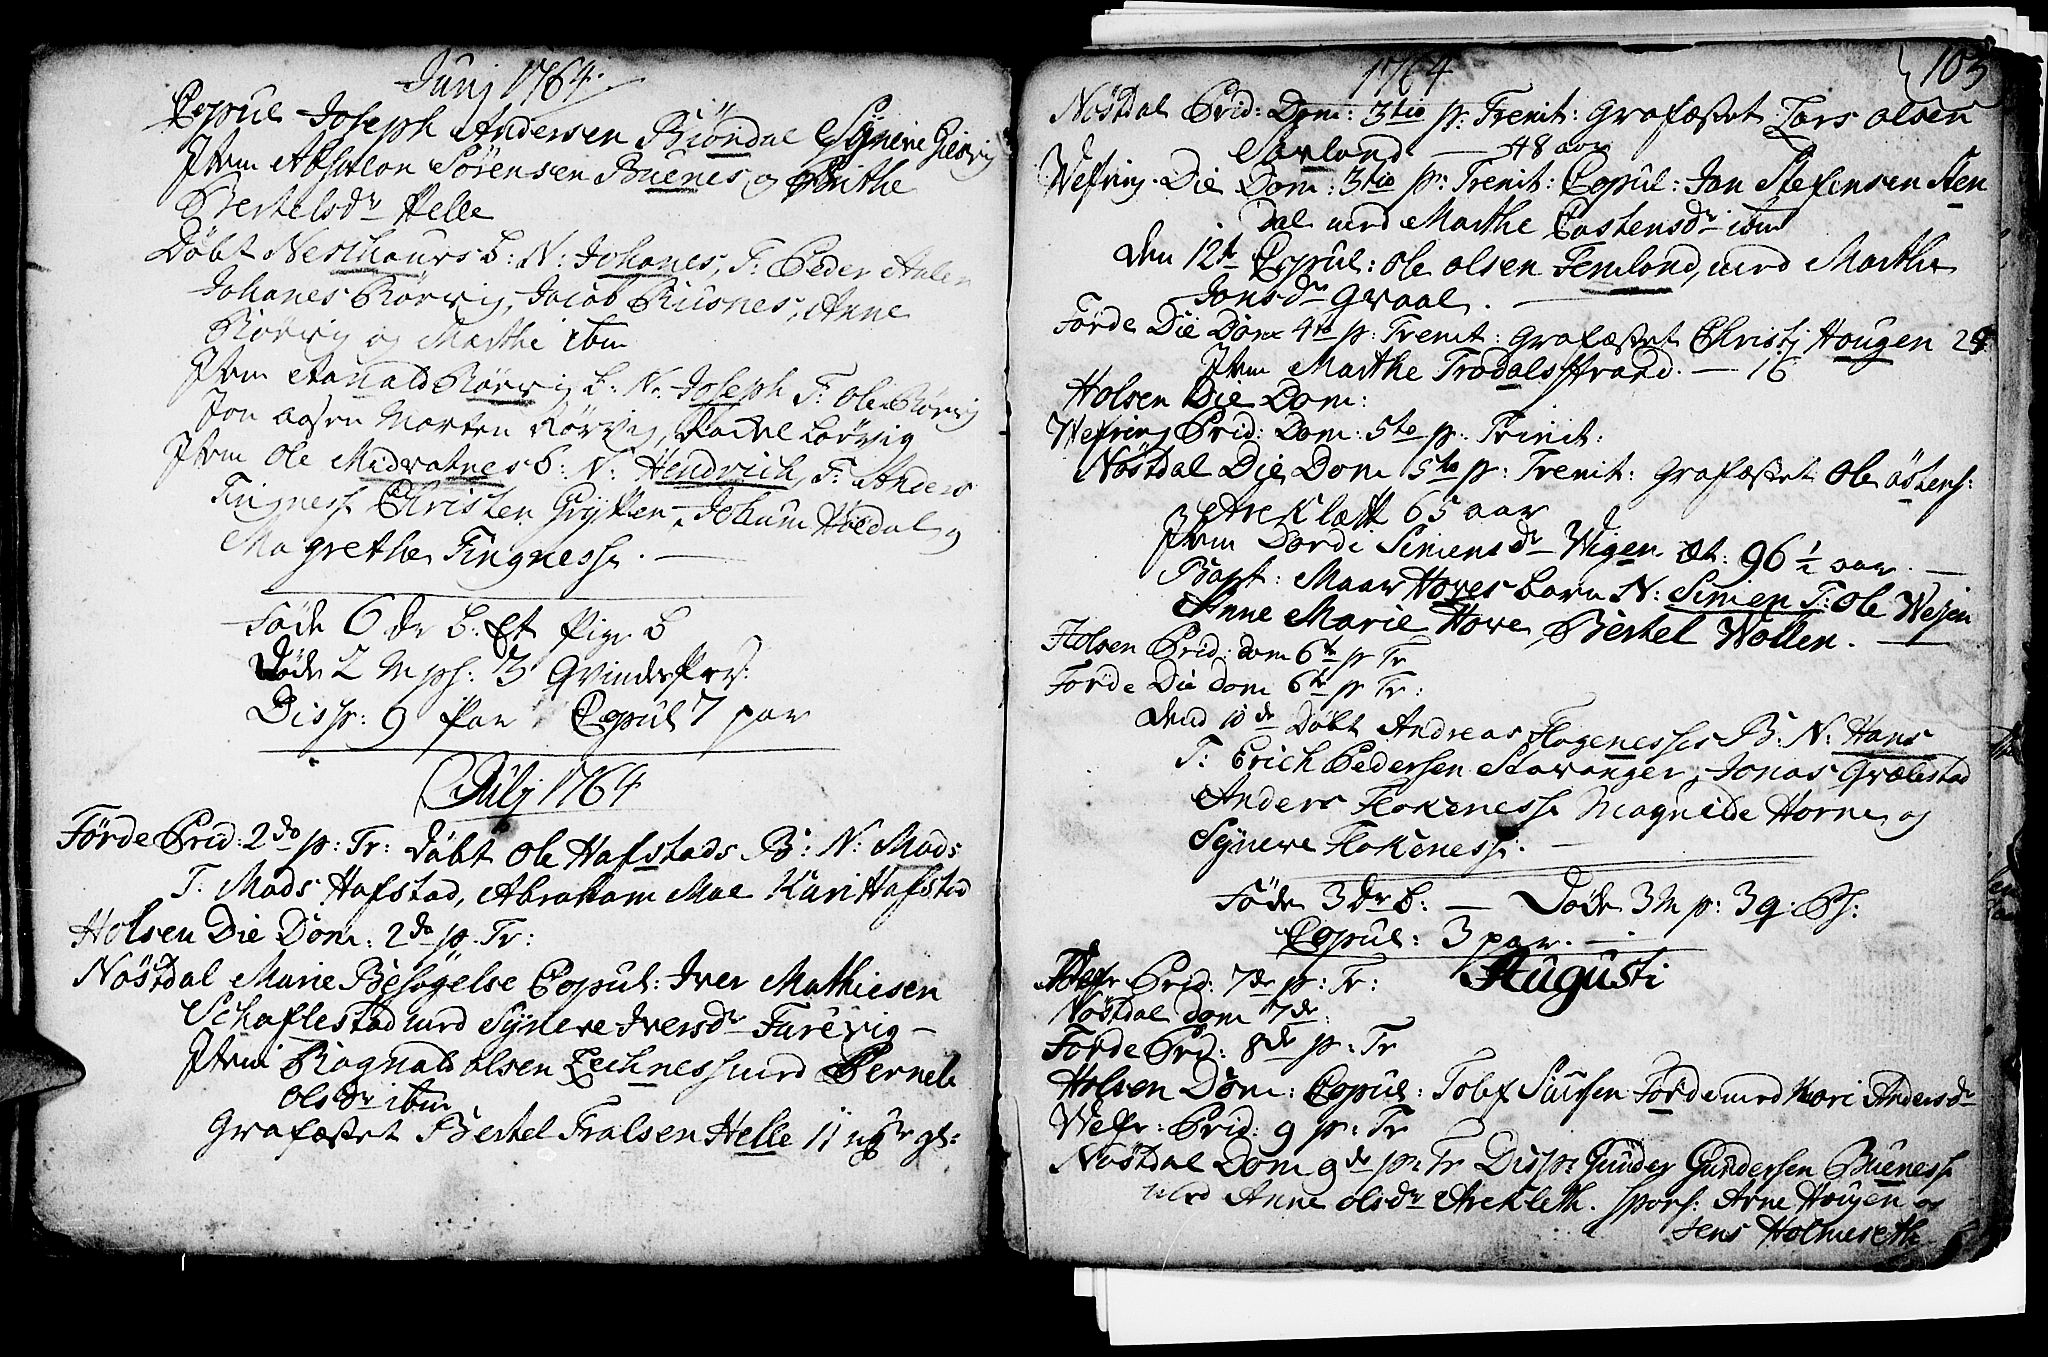 Junj 1764.
Copul Joseph Andersen Biöndal Synneve Giervig
Item Absalon Sörensen Buenes og Brithe
Bertelsdr Helle
Döbt Nesthaurs b: N: Johanes, T: Peder
Johanes Rörvig, Jacob Buesnes, Anne
Rörvig og Marthe ibm
Item Aanald Rörvig b: N: Joseph T: Ole Rörvig
Jon aasen Morten Rörvig, Rachel Rörvig
Item Ole Midvatnes b: N: Hendrich, T: Anders
Tingness Christen Grytten Johan Höedal og
Magrethe Tingness.
Föde 6 dr b: Et Pige b
Döde 2 M ps: 3 Qvinde Prs:
Disp: 9 Par Copul 7 par
Julj 1764
Förde Prid: 2do p: Tr: Döbt Ole Hafstads B: N: Mads
T: Mads Hafstad, Abraham Moe Kari Hafstad
Holsen Die Dom: 2do p. Tr:
Nöstdal Marie Besögelse Copul: Iver Mathiesen
Schaflestad med Synneve Iversdr Farevig
Item Rognald olsen Lechness med Pernele
olsdr ibm
Grafæstet Bertel Tralsen Helle 11 uger gl:
1764
103
Nöstdal Prid: Dom: 3tio p: Trenit: Grafæstet Lars olsen
Sarland — 48 aar
Wefring. Die Dom: 3tio p: Trenit: Copul: Jan Stefensen Sten
dal med Marthe Castensdr ibm
den 12t Copul: Ole olsen Femlond, med Marthe
Jonsdr Gravl.
Förde Die Dom 4to p: Trenit: Grafæstet Christj Hougen 28
Item Marthe Trodals Strand. — 16
Holsen Die Dom:
Wefring Prid: Dom: 5to p: Trinit:
Nöstdal Die Dom 5to p: Trenit: Grafæstet Ole östens:
Areklætt 65 aar
Item Dordi Simensdr Wigen æt: 96 1/2 aar. —
Bapt: Maar Hoves barn N: Simen T: Ole Wesien
Anne Marie Hove, Bertel Wollen. —
Holsen Prid: dom 6te p Tr
Förde Die dom 6te p Tr:
dend 10de Döbt Andreas Flogenesses B: N: Hans
T: Erich Pedersen Stavanger, Jonas Qvalestad
Anders Flokeness Magnilde Horne, og
Synneve Flokeness. —
Föde 3 dr b. — Döde 3 M p: 3 q: Ps:
Copul: 3 par. —
Augusti
Wefr Prid: 7de p: Tr:
Nöstdal dom 7de:
Förde Prd: 8de p: Tr
Holsen Dom: Copul: Tolef Siursen Förde med Mari Andersdr
Wefr: Prid: 9 p: Tr
Nöstdal Dom 9de p: Tr Disp: Gunder Gundersen Bueness
med Anne olsdr Arekleth. spons: Arne Hougen og
Jens Holmeseth